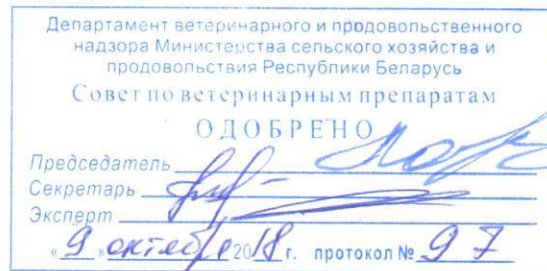 Департамент ветеринарного и продовольственного
надзора Министерства сельского хозяйства и
продовольствия Республики Беларусь
Совет по ветеринарным препаратам
ОДОБРЕНО
Председатель
Секретарь
Эксперт
«9» октября 2018 г. протокол № 97